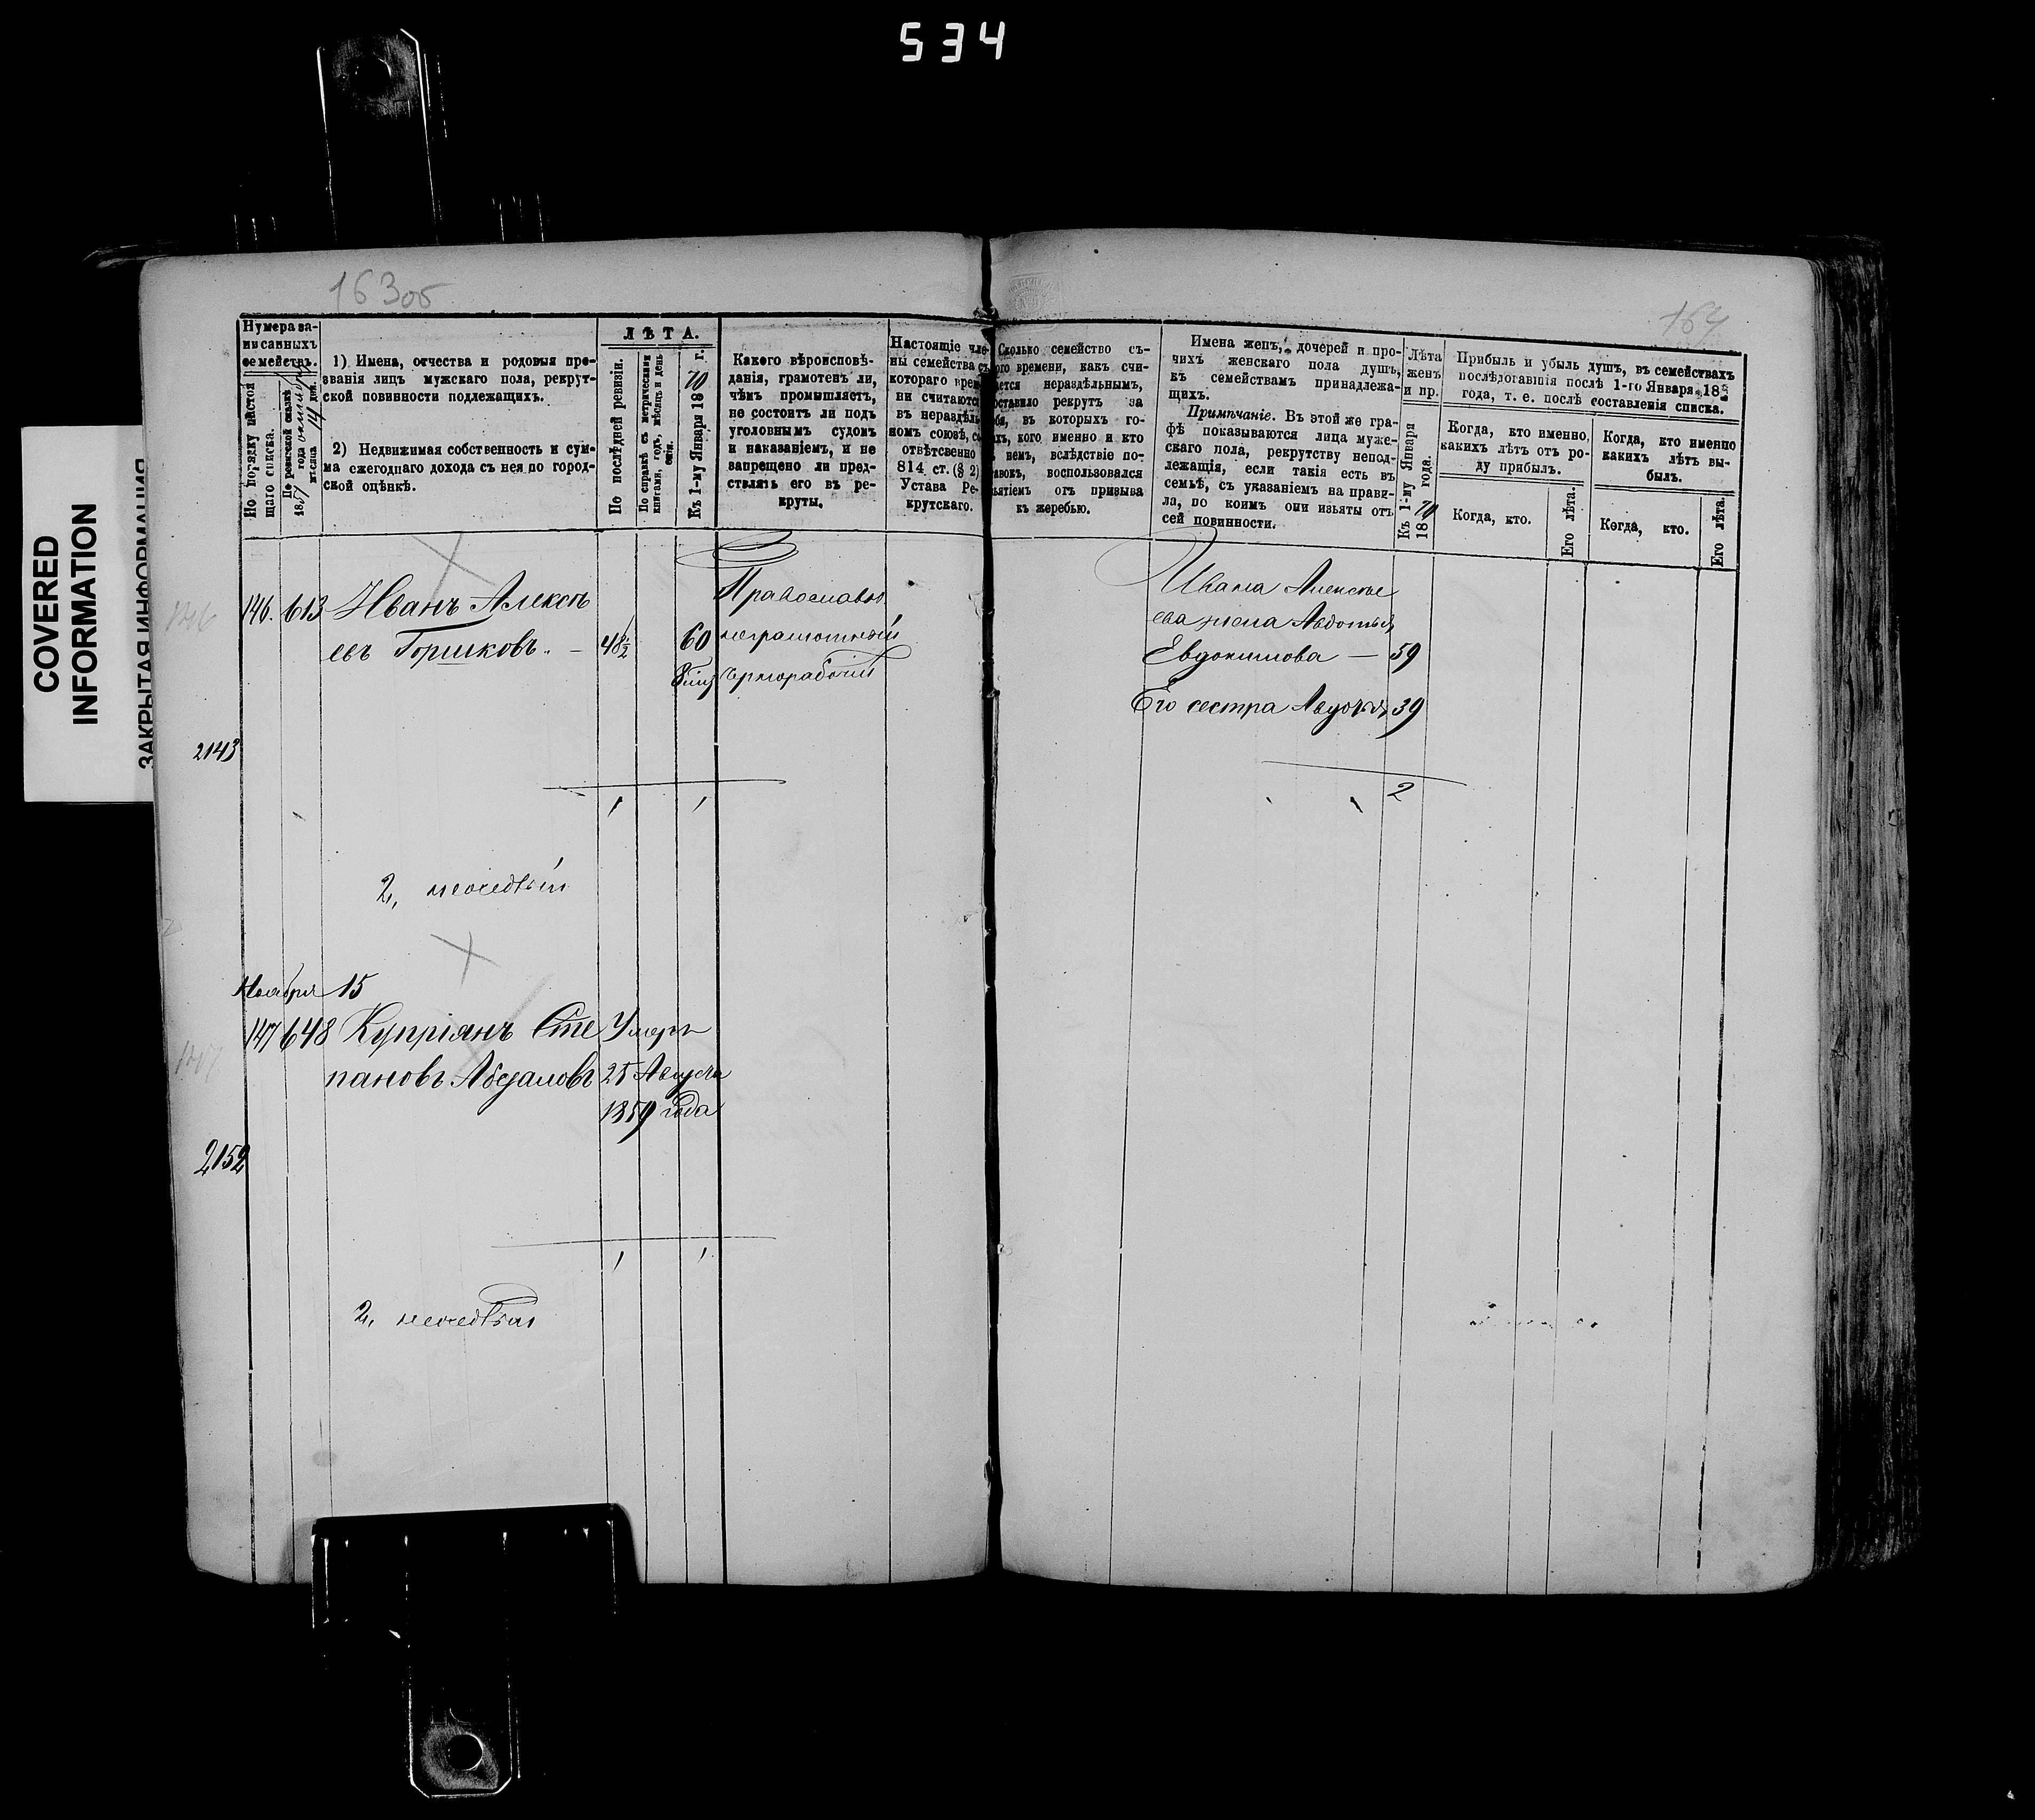 534
COVERED
INFORMATION
ЗАКРЫТАЯ ИНФОРМАЦИЯ
163об
164
Нумера за-
писанныхъ
семействъ.
По порядку настоя-
щаго списка.
По ревизской сказкѣ
1857 года октября
мѣсяца 14 дня.
1) Имена, отчества и родовыя про-
званія лицъ мужскаго пола, рекрут-
ской повинности подлежащихъ.
2) Недвижимая собственность и сум-
ма ежегоднаго дохода съ нея по город-
ской оцѣнкѣ.
ЛѢТА.
По послѣдней ревизіи.
По справкѣ съ метрическими
книгами, годъ, мѣсяцъ и день
Къ 1-му Января 1870 г.
Какого вѣроисповѣ-
данія, грамотенъ ли,
чѣмъ промышляетъ,
не состоитъ ли подъ
уголовнымъ судомъ
и наказаніемъ, и не
запрещено ли пред-
ставлять его въ ре-
круты.
Настоящіе чле-
ны семейства съ
котораго време-
ни считаются
въ нераздѣль-
номъ союзѣ,
отвѣтсвенно
814 ст. (§ 2)
Устава Ре-
крутскаго.
Сколько семейство съ-
ого времени, какъ счи-
тается нераздѣльнымъ,
оставило рекрутъ за
себя, въ которыхъ го-
дахъ, кого именно и кто
немъ, вслѣдствіе по-
тавокъ, воспользовался
зъятіемъ отъ призыва
къ жеребью.
Имена женъ, дочерей и про-
чихъ женскаго пола душъ,
къ семействамъ принадлежа-
щихъ.
Примѣчаніе. Въ этой же гра-
фѣ показываются лица муже-
скаго пола, рекрутству непод-
лежащія, если такія есть въ
семьѣ, съ указаніемъ на прави-
ла, по коимъ они изъяты отъ
сей повинности.
Лѣта
женъ
и пр.
Къ 1-му Января
1870 года.
Прибыль и убыль душъ, въ семействахъ
послѣдовавшія послѣ 1-го Января 18
года, т. е. послѣ составленія списка.
Когда, кто именно,
какихъ лѣтъ отъ ро-
ду прибылъ.
Когда, кто именно
какихъ лѣтъ вы-
былъ.
Когда, кто.
Его лѣта.
Когда, кто.
Его лѣта.
146
146. 613 Иванъ Алексѣ
евъ Горшковъ. — 48½ 60
Православ
неграмотный
чернорабочій
Ивана Алексѣе
ева жена Авдотья
Евдокимова — 59
Его сестра Авдотья 39
2143
1 1
2
2, неосѣдлый
Ноября 15
147
147 648 Купріянъ Сте
пановъ Абдаловъ
Умеръ
25 Августа
1859 года
2152
1 1
2, неосѣдлый